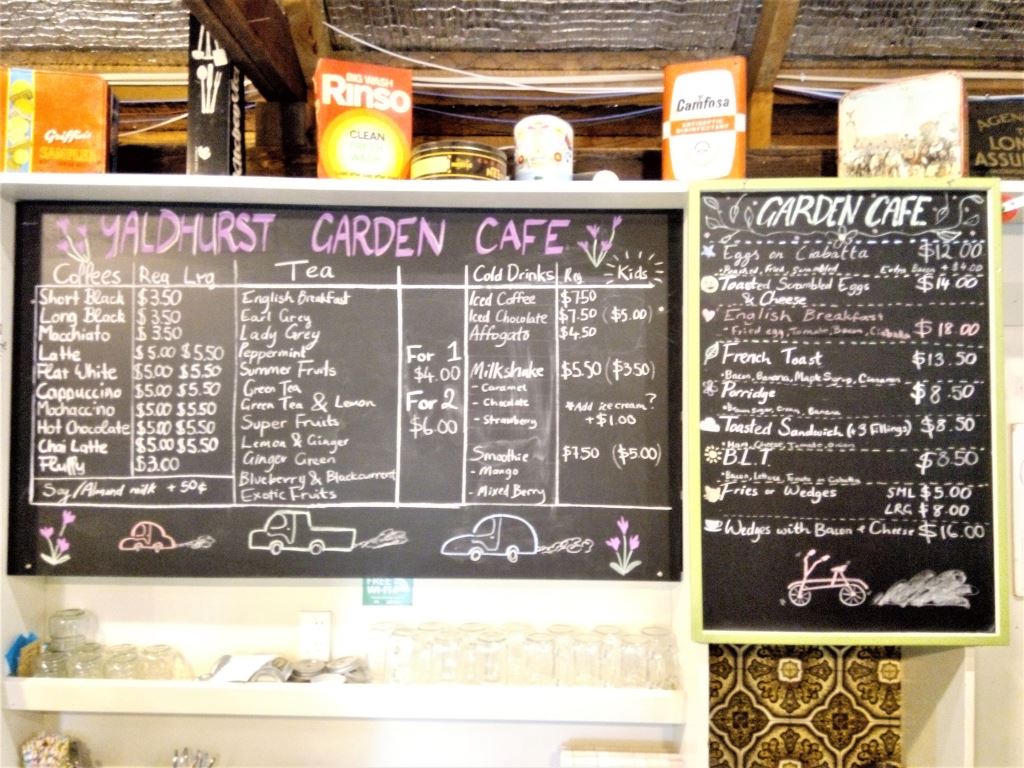 Griffin's
SAMPLER
BIG WASH
Rinso
CLEAN
FRESH
WASH
Camfosa
ANTISEPTIC
DISINFECTANT
AGEN
LON
ASSU
YALDHURST GARDEN CAFE
Coffees Reg Lrg
Short Black $3.50
Long Black $3.50
Macchiato $3.50
Latte $5.00 $5.50
Flat White $5.00 $5.50
Cappuccino $5.00 $5.50
Mochaccino $5.00 $5.50
Hot Chocolate $5.00 $5.50
Chai Latte $5.00 $5.50
Fluffy $3.00
Soy/Almond milk +50¢
Tea
English Breakfast
Earl Grey
Lady Grey
Peppermint
Summer Fruits
Green Tea
Green Tea & Lemon
Super Fruits
Lemon & Ginger
Ginger Green
Blueberry & Blackcurrant
Exotic Fruits
For 1
$4.00
For 2
$6.00
Cold Drinks Reg Kids
Iced Coffee $7.50
Iced Chocolate $7.50 ($5.00)
Affrogato $4.50
Milkshake $5.50 ($3.50)
- Caramel
- Chocolate
- Strawberry
*Add ice cream?
+$1.00
Smoothie $7.50 ($5.00)
- Mango
- Mixed Berry
GARDEN CAFE
Eggs on Ciabatta $12.00
- Poached, Fried, Scrambled Extra Bacon + $4.00
Toasted Scrambled Eggs $14.00
& Cheese
English Breakfast
- Fried egg, Tomato, Bacon, Ciabatta $18.00
French Toast $13.50
- Bacon, Banana, Maple Syrup, Cinnamon
Porridge $8.50
- Brown sugar, Cream, Banana
Toasted Sandwich (+3 fillings) $8.50
- Ham, Cheese, Tomato, Onion
B.L.T $8.50
- Bacon, Lettuce, Tomato on Ciabatta
Fries or Wedges SML $5.00
LRG $8.00
Wedges with Bacon + Cheese $16.00
FREE
Wi-Fi